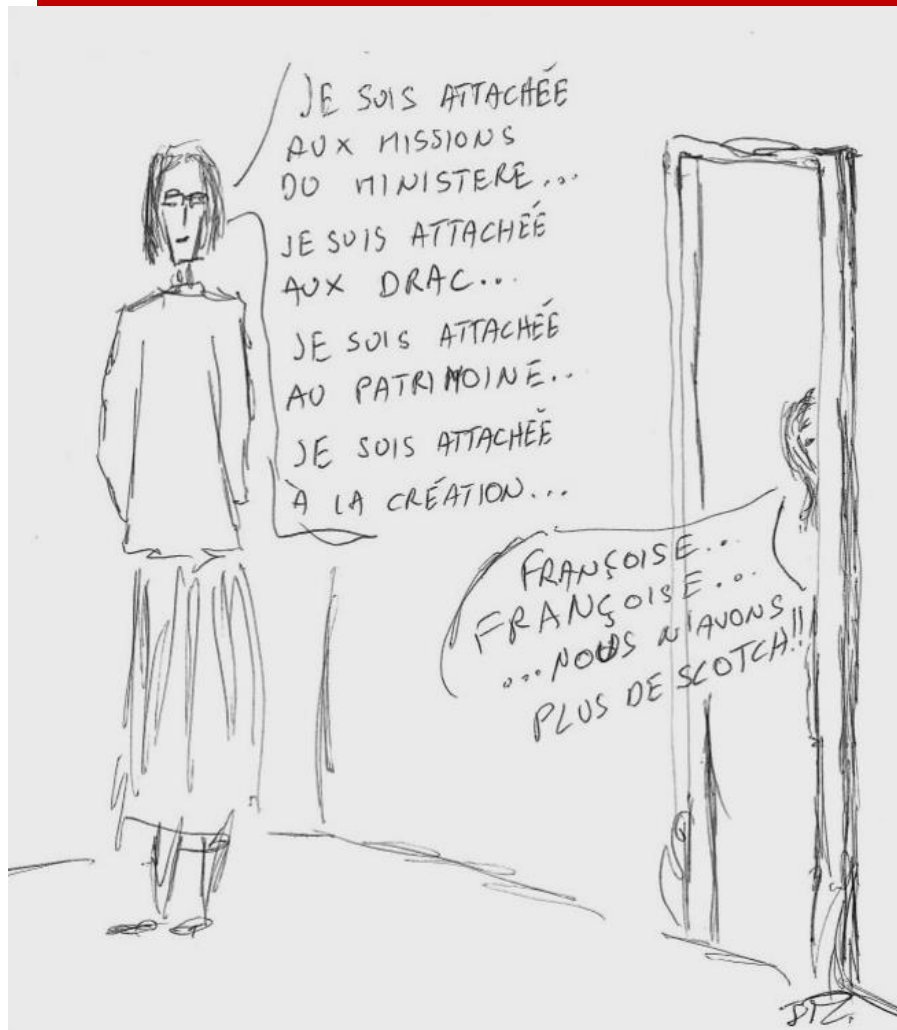 JE SUIS ATTACHÉE
AUX MISSIONS
DU MINISTERE...
JE SUIS ATTACHÉE
AUX DRAC...
JE SUIS ATTACHÉE
AU PATRIMOINE..
JE SUIS ATTACHÉE
À LA CRÉATION...
FRANÇOISE...
FRANÇOISE...
...NOUS N'AVONS
PLUS DE SCOTCH!!